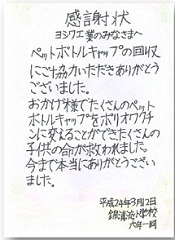 感謝状
ヨシワ工業のみなさまへ
ペットボトルキャップの回収
にご協力いただきありがとう
ございました。
おかげ様でたくさんのペット
ボトルキャップをポリオワクチ
ンに変えることができたくさんの
子供の命が救われました。
今まで本当にありがとうござい
ました。
平成24年3月12日
小学校
六年一同